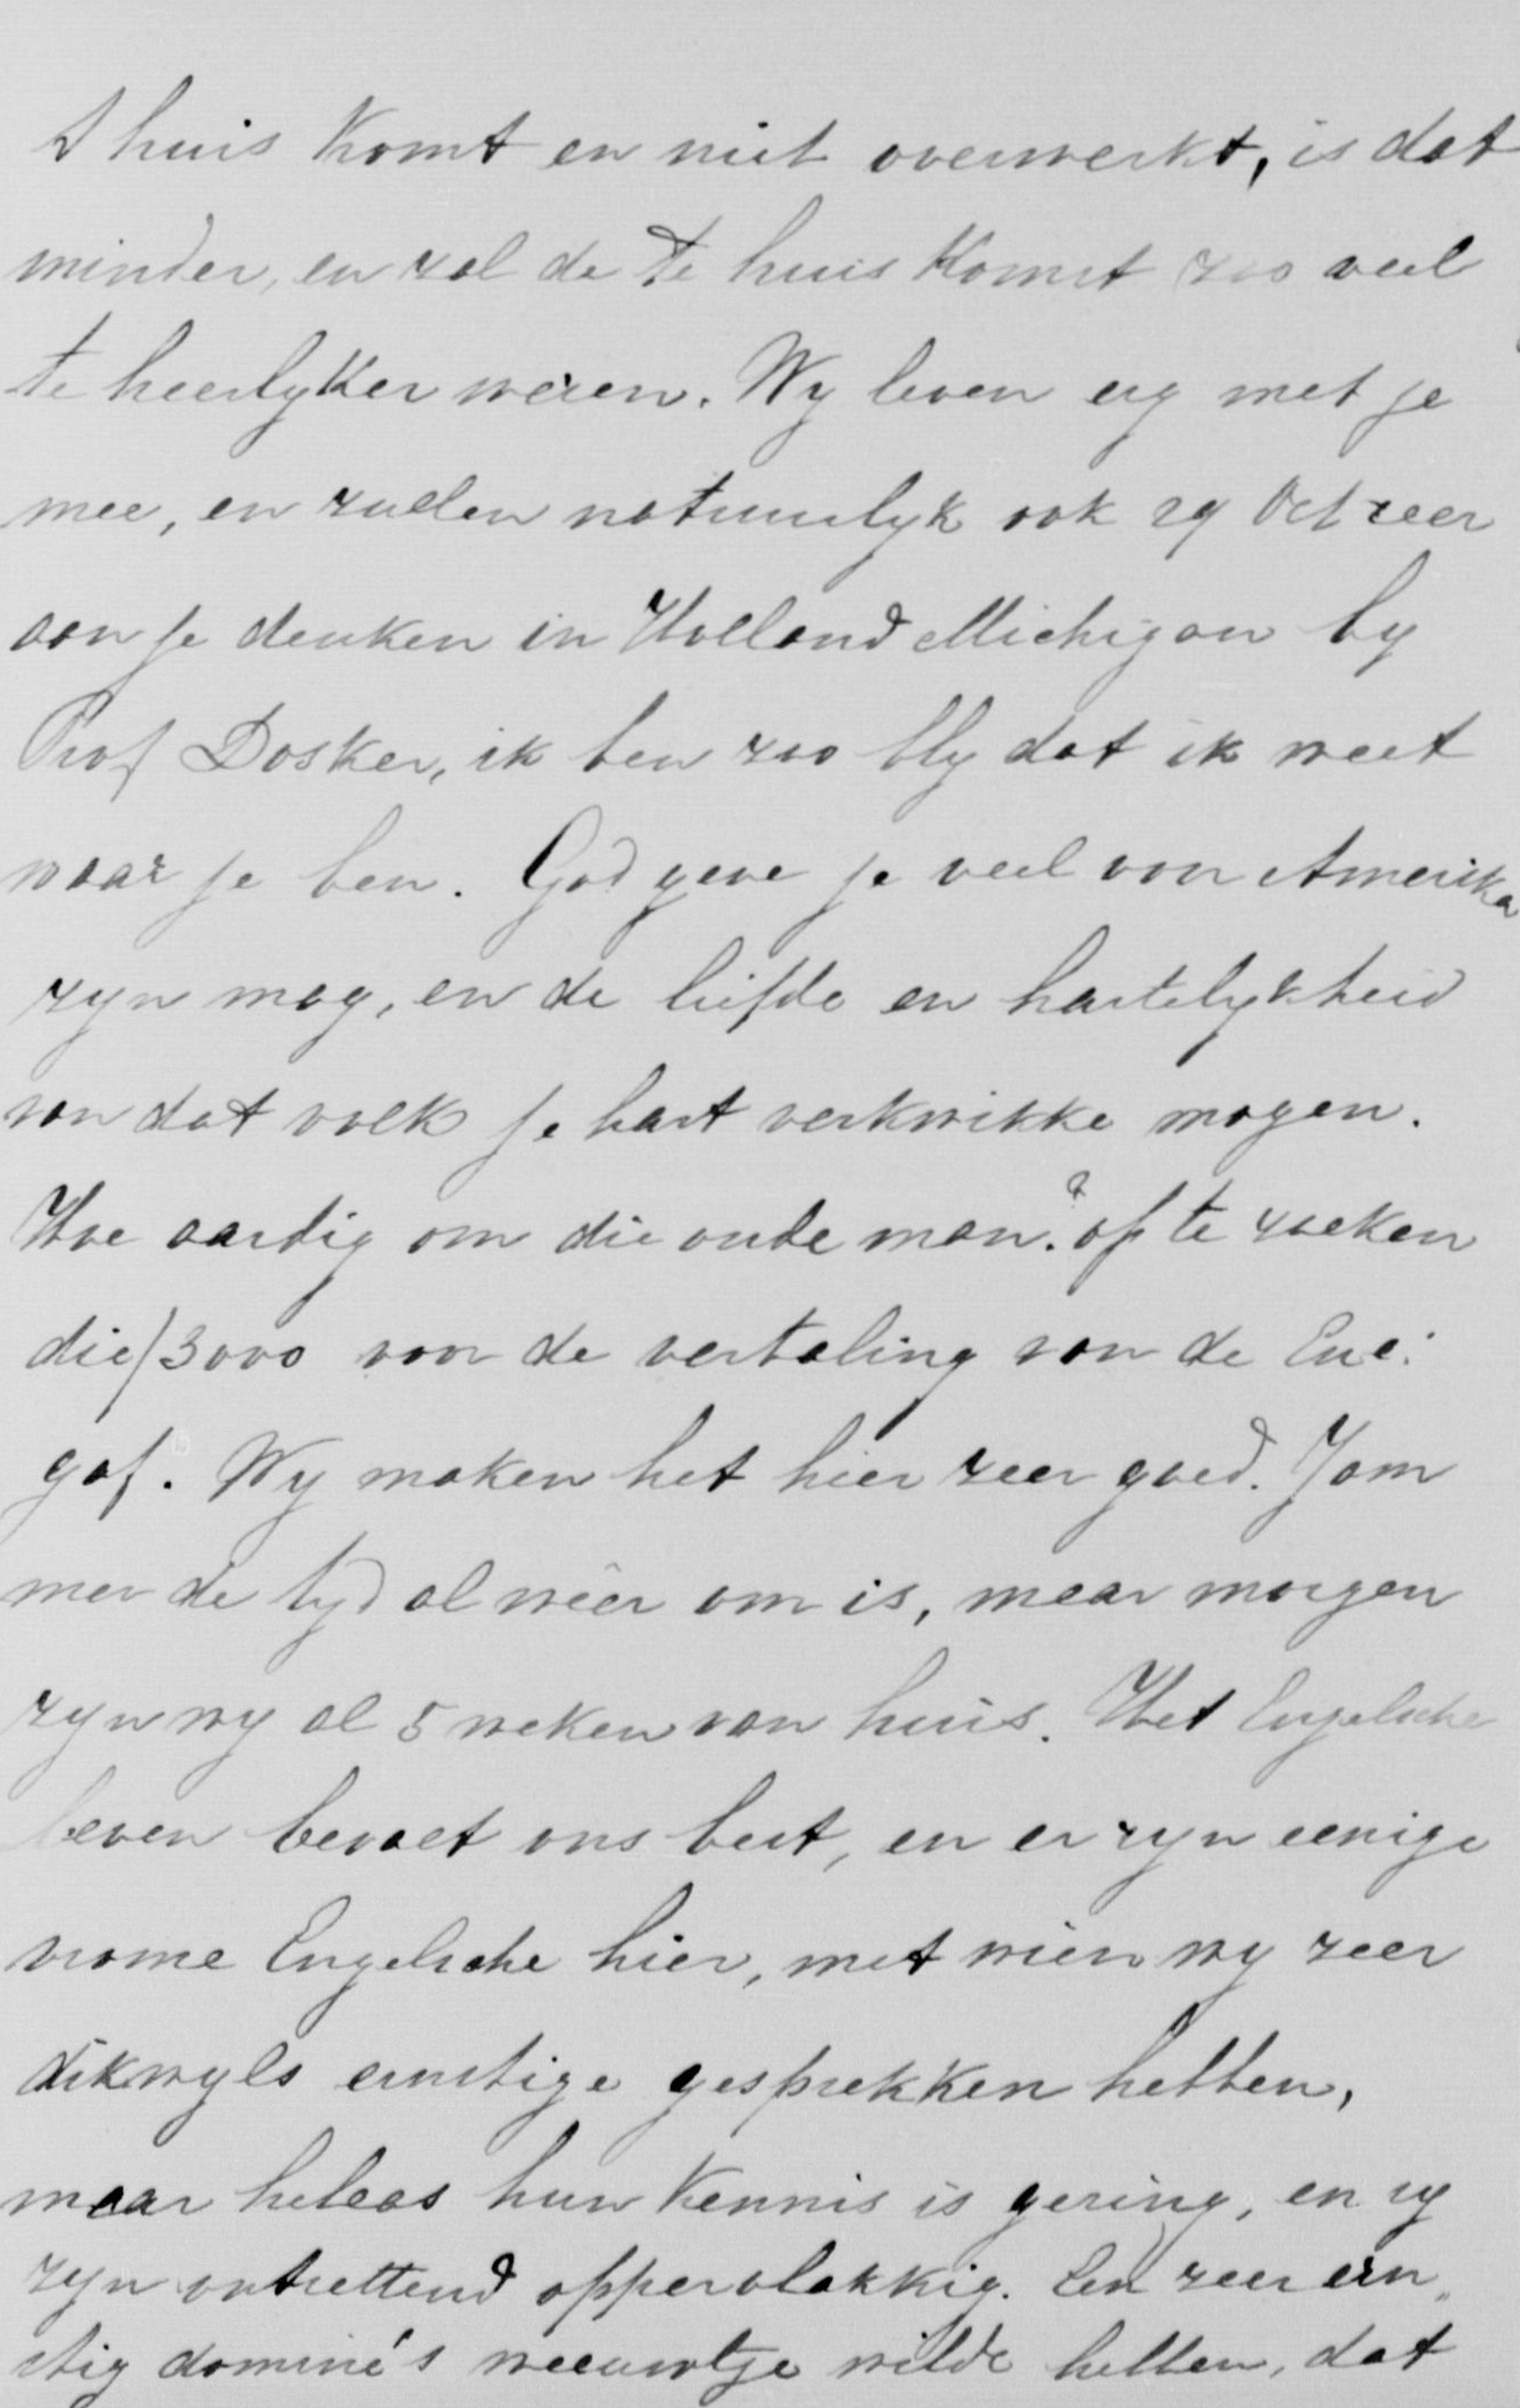 t huis komt en niet overwerkt, is dat
minder, en zal de te huis komst zoo veel
te heerlyker wezen. Wy leven erg met je
mee, en zullen natuurlyk ook 29 Oct zeer
aan je denken in Holland Michigan by
Prof Dosker, ik ben zoo bly dat ik weet
waar je ben. God geve je veel voor Amerika
zyn mag, en de liefde en hartelykheid
van dat volk je hart verkwikke mogen.
Hoe aardig om die oude man? op te zoeken
die ƒ3000 voor de vertaling van de Enc:
gaf. Wy maken het hier zeer goed. Jam
mer de tyd al wêer om is, maar morgen
zyn wy al 5 weken van huis. Het Engelsche
leven bevalt ons best, en er zyn eenige
vrome Engelsche hier, met wien wy zeer
dikwyls ernstige gesprekken hebben,
maar helaas hun kennis is gering, en zy
zyn ontzettend oppervlakkig. Een zeer ern„
stig dominé's weeuwtje wilde hebben, dat